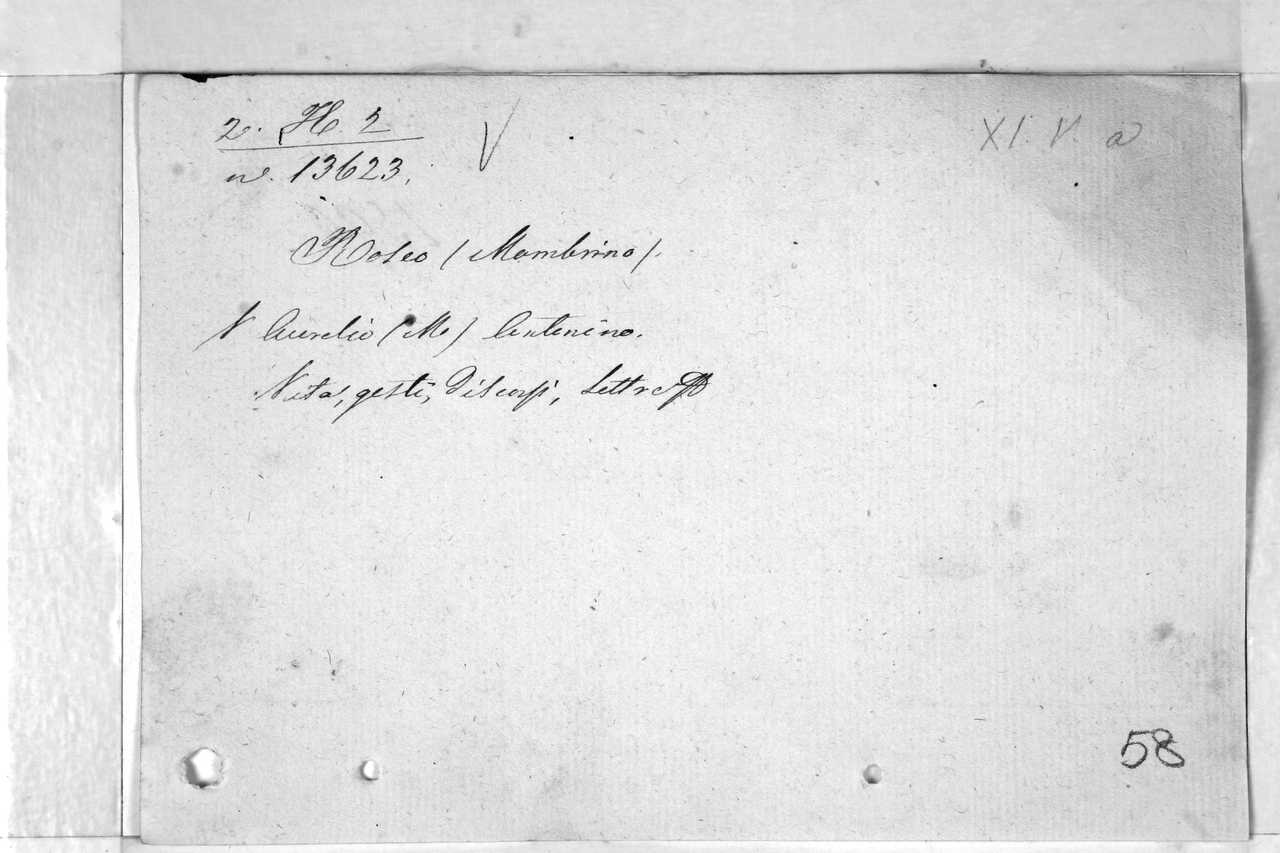 2. H. 2 V XI. V. a
n. 13623.
Roseo (Mambrino).
V Aurelio (M.) Antonino.
Vita, gesti, discorsi, lettre
58